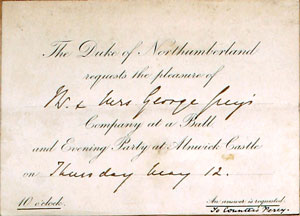 The Duke of Northumberland
requests the pleasure of
Mr. & Mrs George Grey's
Company at a Ball
and Evening Party at Alnwick Castle
on Thursday May 12.
10 o'clock. An answer is requested
To Countess Percy.